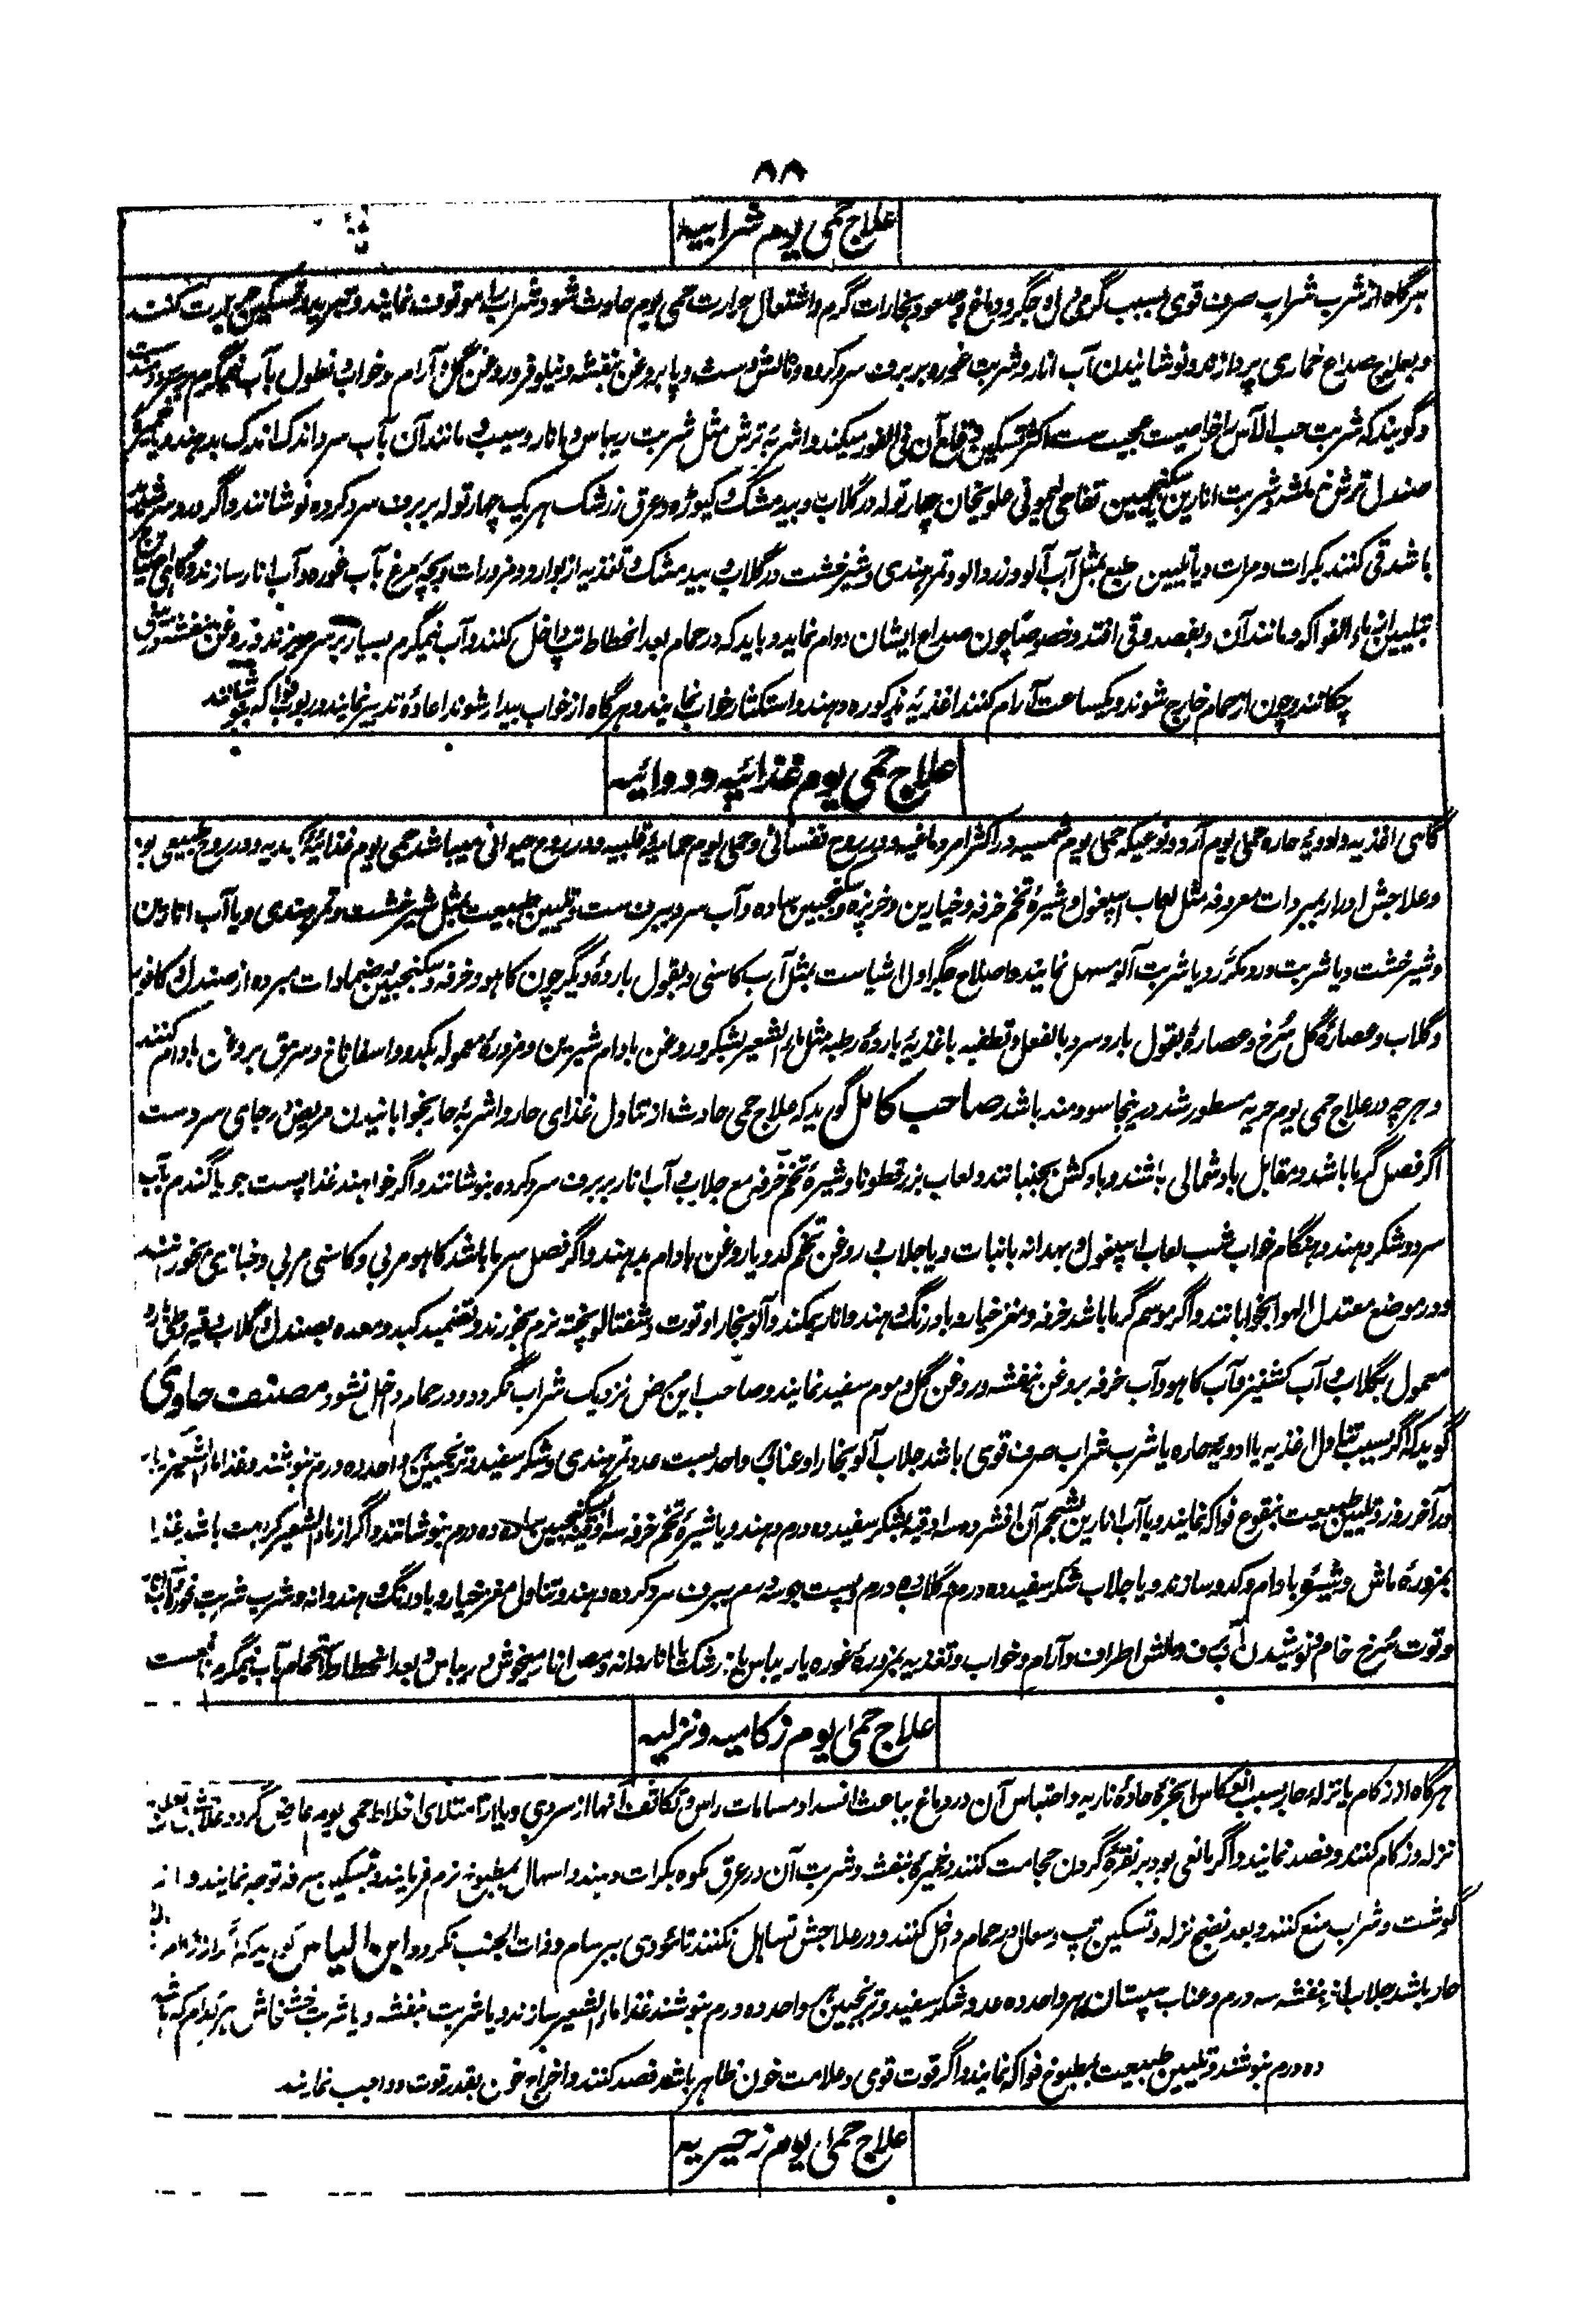 ۸۸
علاج حمی یوم شرابیہ
ہرگاہ از شرب شراب صرف قوی بسبب گرمی آن و جگر و دماغ و صعود بخارات گرم و اشتعال حرارت حمی یوم حادث شود شراب را موقوف نمایند و تبرید و تسکین حدت کنند
و بعلاج صداع خماری پردازند و نوشانیدن آب انار و شربت غوره ببرف سرد کرده و مالش دست و پا بروغن بنفشه و نیلوفر و روغن گل و آرام و خواب و نطول بآب نیمگرم
و گویند که شربت حب الآس را خاصیت عجیب ست اکثر تسکین فی الفور میکند و اشربۂ ترش مثل شربت ریباس و انار و سیب و مانند آن بآب سرد اندک اندک بدهند
صندل ترش باشد و شربت انارین یا سکنجبین تفاحی لیمونی چهار توله در گلاب و بید مشک و کیوڑه و عرق زرشک هر یک چهار توله ببرف سرد کرده نوشانند و اگر درد سر شدید
باشد قی کنند بکرات و مرات و یا تلیین طبع بمثل آب آلو و زردالو و تمر هندی و شیرخشت در گلاب و بید مشک و تغذیه از بوارد و مزورات و بچۂ مرغ بآب غوره و آب انار سازند و گاهی احتیاج
تلیین بماء الفواکه و مانند آن و بفصد و قی افتد و خصوصاً چون صداع ایشان دوام نماید و باید که در حمام بعد انحطاط تپ داخل کنند و آب نیمگرم بسیار بر سر ریزند و روغن بنفشه
چکانند و چون از حمام خارج شوند و یکساعت آرام کنند اغذیۂ مذکوره دهند و استکثار خواب نمایند و هرگاه از خواب بیدار شوند اعادۂ تدبیر نمایند
علاج حمی یوم غذائیہ و دوائیہ
گاهی اغذیه و ادویۂ حاره حمی یوم آرد و نوعیکه حمی یوم شمسیه در اکثر امر دماغیه و در روح نفسانی و حمی یوم حمامیه قلبیه و در روح حیوانی میباشد حمی یوم غذائیه کبدیه و در روح طبیعی بود
و علاجش ادرار بمبردات معروفه مثل لعاب اسپغول و شیرۂ تخم خرفه و خیارین و خربزه و سکنجبین ساده و آب سرد ببرف ست و تلیین طبیعت بمثل شیرخشت و تمر هندی و یا آب انارین
و شیرخشت و یا شربت ورد مکرر و یا شربت آلو مسهل نمایند و اصلاح جگر اول اشیاست بمثل آب کاسنی و بقول باردۂ دیگر چون کاهو و خرفه و سکنجبین و ضمادات مبرده از صندل و کافور
و گلاب و عصارۂ گل سرخ و عصارۂ بقول بارد و سرد بالفعل و تطفیه باغذیۂ باردۂ رطبه مثل ماء الشعیر بشکر و روغن بادام شیرین و مزورۂ معموله بکدو و اسفاناخ و سرمق بروغن بادام کنند
و هر چه در علاج حمی یوم حریه مسطور شد درینجا سودمند باشد صاحب کامل گوید که علاج حمی حادث از تناول غذای حار و اشربۂ حار بخوابانیدن مریض در جای سرد ست
اگر فصل گرما باشد و مقابل باد شمالی باشند و بادکش بجنبانند و لعاب بزرقطونا و شیرۂ تخم خرفه مع جلاب و آب انار ببرف سرد کرده بنوشانند و اگر خواهند غذا پست جو یا گندم بآب
سرد و شکر دهند و هنگام خواب شب لعاب اسپغول و بهدانه با نبات و یا جلاب و روغن تخم کدو یا روغن بادام بدهند و اگر فصل سرما باشد کاهو مربی و کاسنی مربی و خبازی بخورانند
و در موضع معتدل الهوا بخوابانند و اگر موسم گرما باشد خرفه و مغز خیار و بادرنگ و هندوانه بمکند و آلو بخارا و توت و شفتالو پخته نرم بخورند و تضمید کبد و معده بصندل و گلاب
معمول بگلاب و آب کشنیز و آب کاهو و آب خرفه بروغن بنفشه و روغن گل و موم سفید نمایند و صاحب این مرض نزدیک شراب نگردد و در حمام داخل نشود مصنف حاوی
گوید که اگر بسبب تناول اغذیه یا ادویۂ حاره یا شرب شراب صرف قوی باشد جلاب آلو بخارا و عناب واحد بست عدد و تمر هندی و شکر سفید و ترنجبین واحد ده درم بنوشند و غذا ماء الشعیر
و آخر روز و تلیین طبیعت بنقوع فواکه نمایند و یا آب انارین بشحم آن افشرده سه اوقیه بشکر سفید ده درم دهند و یا شیرۂ تخم خرفه سه اوقیه سکنجبین ساده ده درم بنوشانند و اگر از ماء الشعیر کراهت باشد غذا
بمزورۂ ماش و شیرۂ بادام و کدو سازند و یا جلاب شکر سفید ده درم و گلاب ده درم و پست جو شسته ببرف سرد کرده دهند و تناول مغز خیار و بادرنگ و هندوانه و شرب شربت غوره
و توت سرخ خام و نوشیدن آب برف و مالش اطراف و آرام و خواب و تغذیه بمزورۂ غوره یا ریباس یا زرشک یا اناردانه و مص انار میخوش و ریباس و بعد انحطاط استحمام بآب نیمگرم
علاج حمای یوم زکامیہ و نزلیہ
هرگاه از زکام یا نزلۂ حار بسبب انعکاس ابخرۂ حادۂ ناریه و احتباس آن در دماغ بباعث انسداد مسامات راس و تکاثف آنها از سردی و یا از امتلای اخلاط حمی یوم عارض گردد
نزله و زکام کنند و فصد نمایند و اگر مانعی بود بر نقرۂ گردن حجامت کنند و خمیرۂ بنفشه و شربت آن در عرق مکوه بکرات دهند و اسهال بمطبوخ نرم فرمایند و تسکین سرفه توجه نمایند و از
گوشت و شراب منع کنند و بعد نضج نزله و تسکین تپ و سعال در حمام داخل کنند و در علاجش تساهل نکنند تا مودی ببرسام و ذات الجنب نگردد ابن الیاس گوید که اگر از زکام
حار باشد جلاب از بنفشه سه درم و عناب سپستان هر واحد ده عدد و شکر سفید و ترنجبین هر واحد ده درم بنوشند غذا ماء الشعیر سازند و یا شربت بنفشه و یا شربت خشخاش هر کدام که باشد
ده درم بنوشند و تلیین طبیعت بمطبوخ فواکه نمایند و اگر قوت قوی و علامت خون ظاهر باشد فصد کنند و اخراج خون بقدر قوت و واجب نمایند
علاج حمای یوم زحیریہ